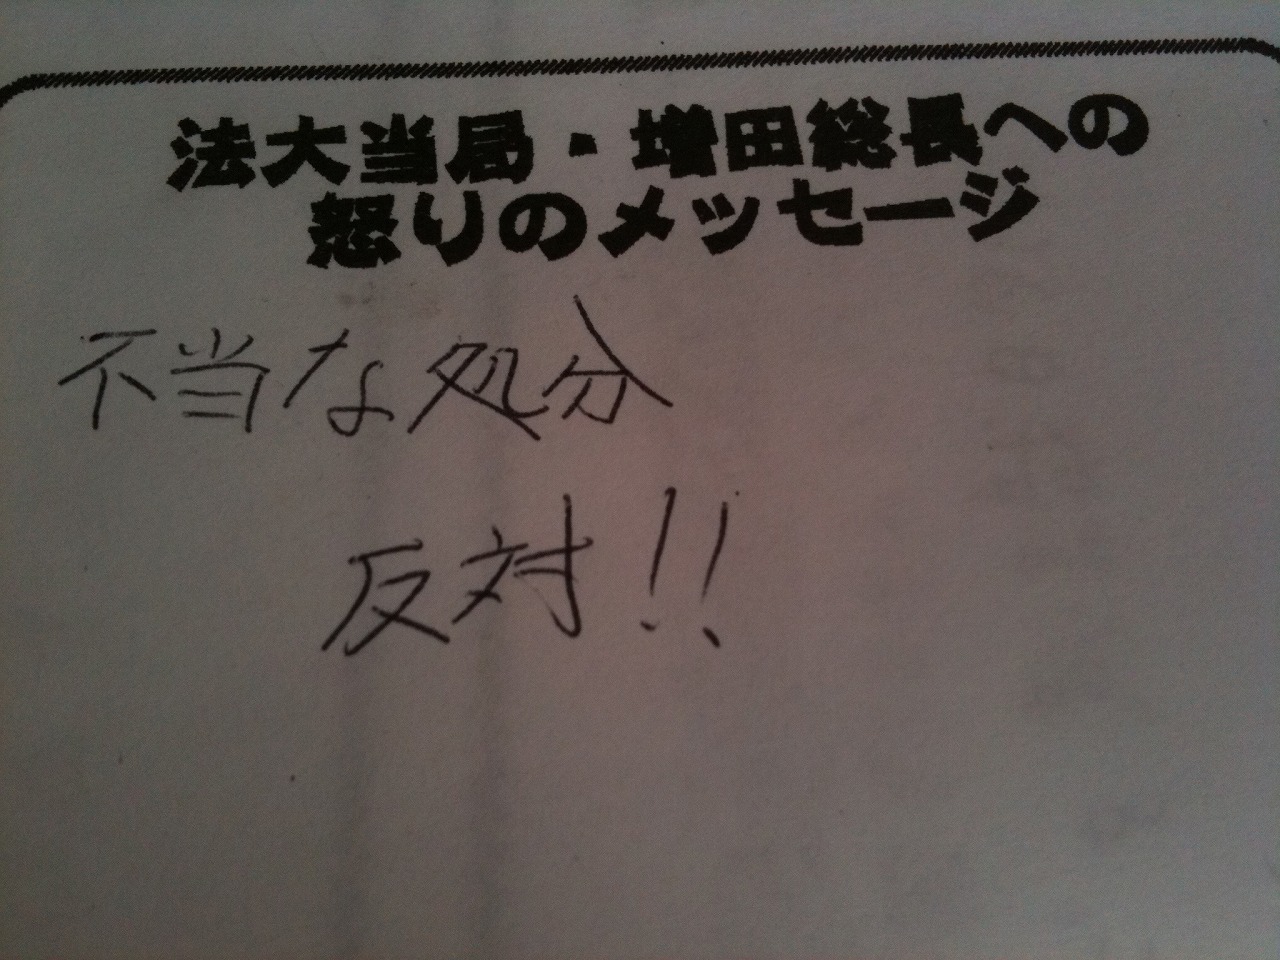 法大当局・増田総長への
怒りのメッセージ
不当な処分
反対!!